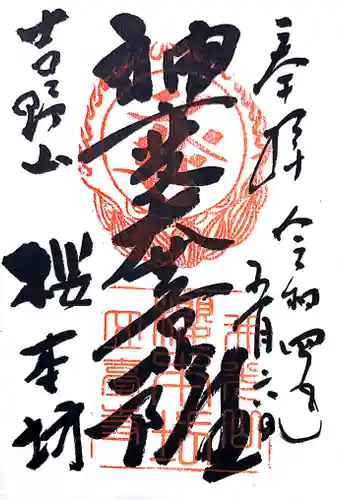 奉拝
令和四年
五月六日
神変大菩薩
吉野山
櫻本坊